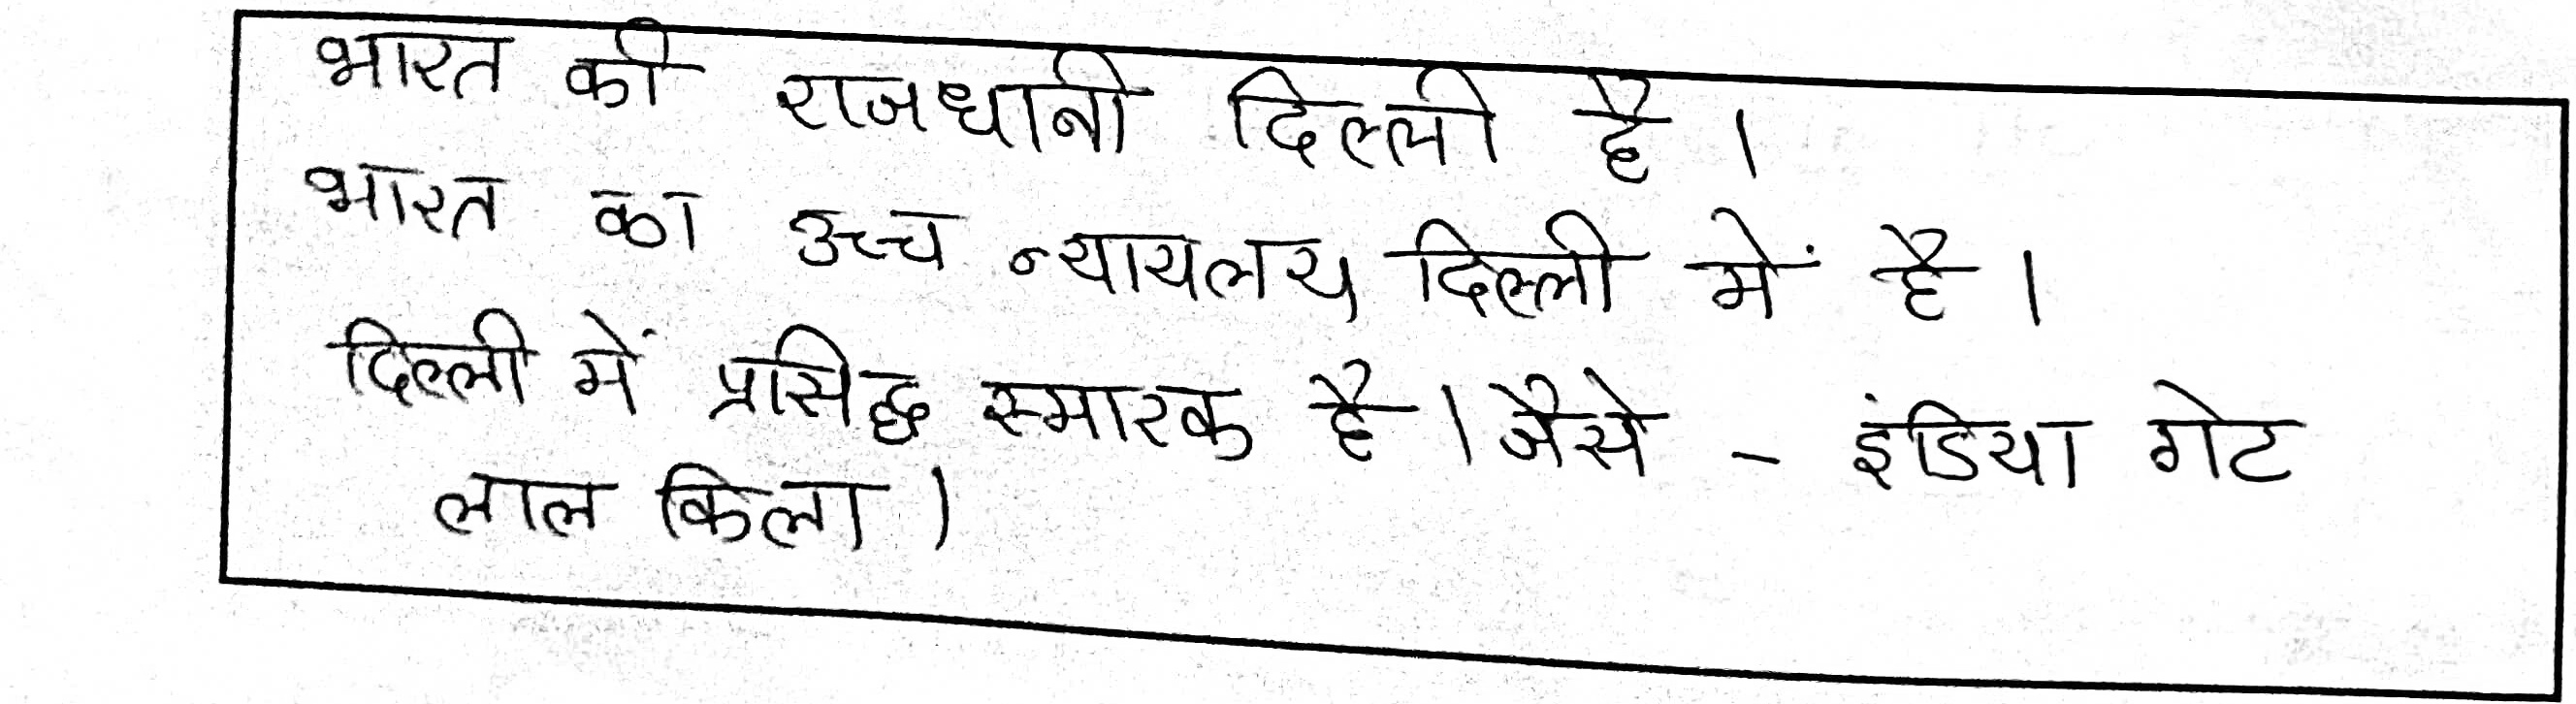 भारत की राजधानी दिल्ली है।
भारत का उच्च न्यायलय दिल्ली में है।
दिल्ली में प्रसिद्ध स्मारक है। जैसे - इंडिया गेट
लाल किला।